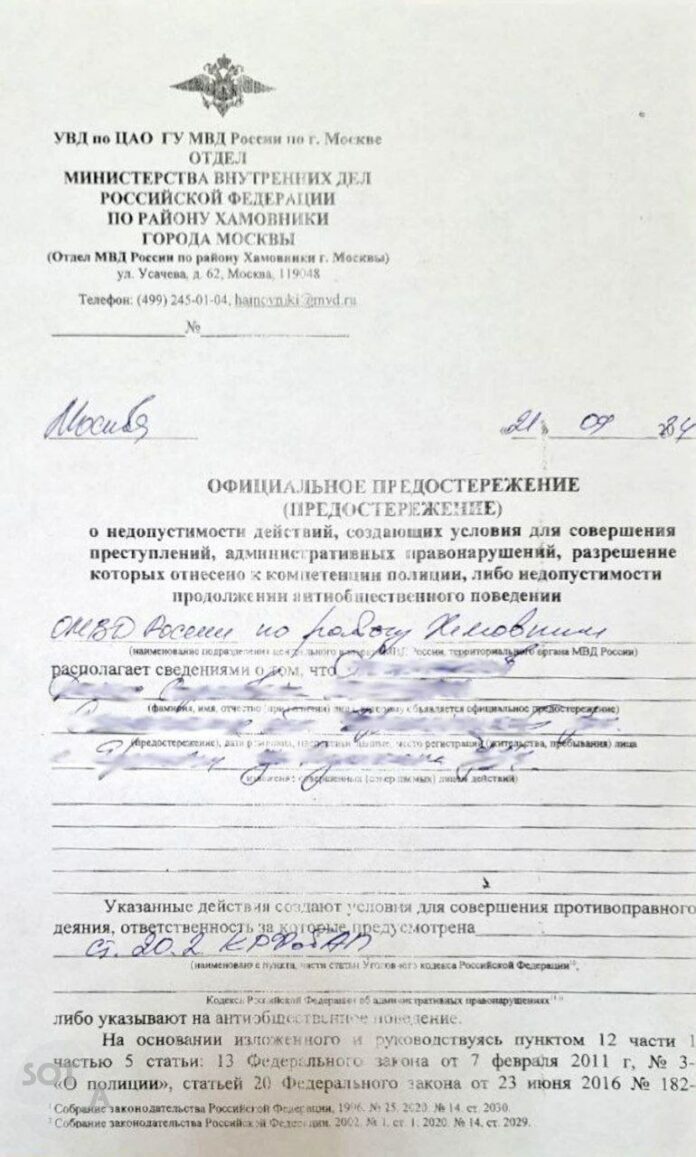 УВД по ЦАО ГУ МВД России по г. Москве
ОТДЕЛ
МИНИСТЕРСТВА ВНУТРЕННИХ ДЕЛ
РОССИЙСКОЙ ФЕДЕРАЦИИ
ПО РАЙОНУ ХАМОВНИКИ
ГОРОДА МОСКВЫ
(Отдел МВД России по району Хамовники г. Москвы)
ул. Усачева, д. 62, Москва, 119048
Телефон: (499) 245-01-04, hamovniki@mvd.ru
№
Москва
«21» 09 24
ОФИЦИАЛЬНОЕ ПРЕДОСТЕРЕЖЕНИЕ
(ПРЕДОСТЕРЕЖЕНИЕ)
о недопустимости действий, создающих условия для совершения
преступлений, административных правонарушений, разрешение
которых отнесено к компетенции полиции, либо недопустимости
продолжении антиобщественного поведении
ОМВД России по району Хамовники
(наименование подразделения центрального аппарата МВД России, территориального органа МВД России)
располагает сведениями о том, что
(фамилия, имя, отчество (при наличии) лица, которому объявляется официальное предостережение)
(предостережение), дата рождения, место регистрации (жительства, пребывания) лица
изложение совершенных (совершаемых) лицом действий)
Указанные действия создают условия для совершения противоправного
деяния, ответственность за которые предусмотрена
ст. 20.2 КРФобАП
(наименование пункта, части статьи Уголовного кодекса Российской Федерации
Кодекса Российской Федерации об административных правонарушениях
либо указывают на антиобщественное поведение.
На основании изложенного и руководствуясь пунктом 12 части 1
частью 5 статьи: 13 Федерального закона от 7 февраля 2011 г, № 3-
«О полиции», статьей 20 Федерального закона от 23 июня 2016 № 182-
¹ Собрание законодательства Российской Федерации, 1996, № 25. 2020. № 14. ст. 2030.
² Собрание законодательства Российской Федерации. 2002. № 1. ст. 1. 2020. № 14. ст. 2029.
SOTA